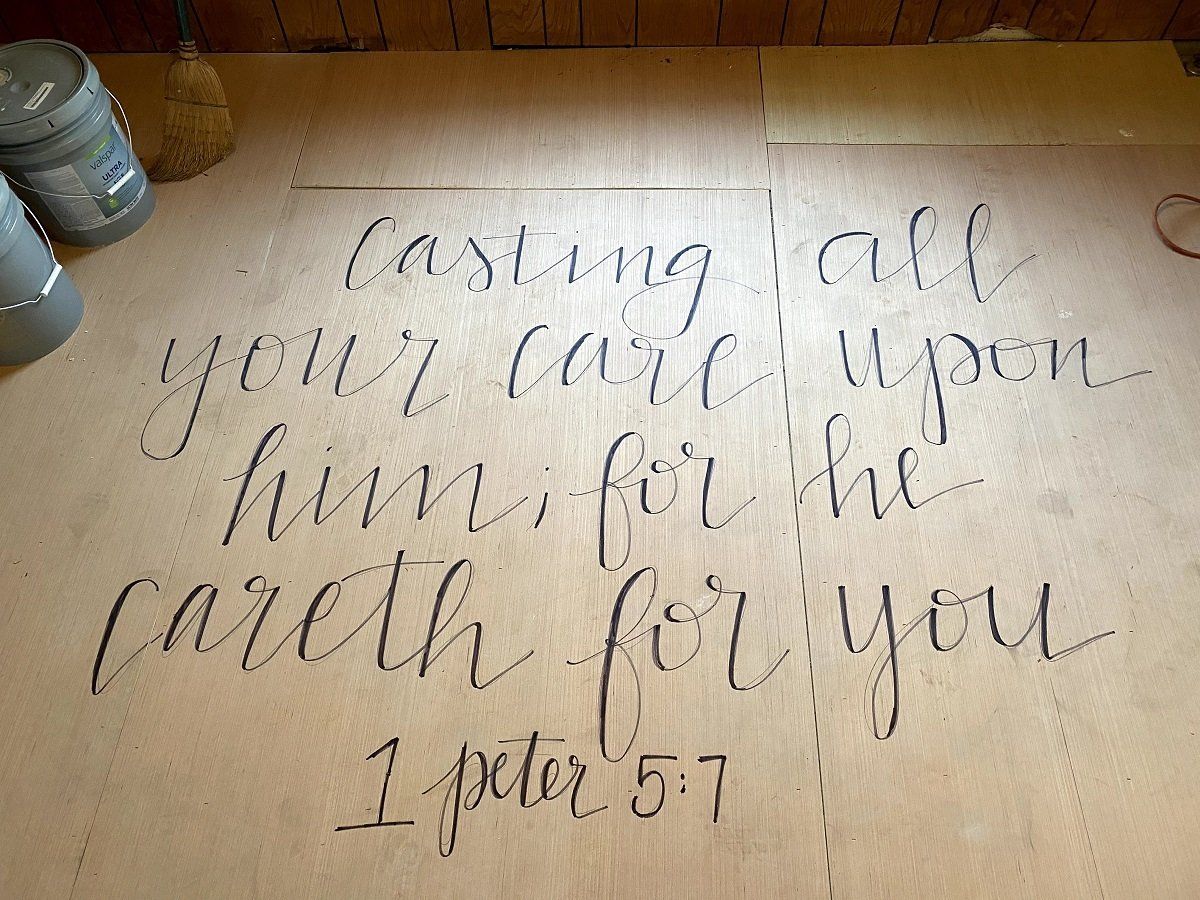 valspar
ULTRA
casting all
your care upon
him; for he
careth for you
1 peter 5:7